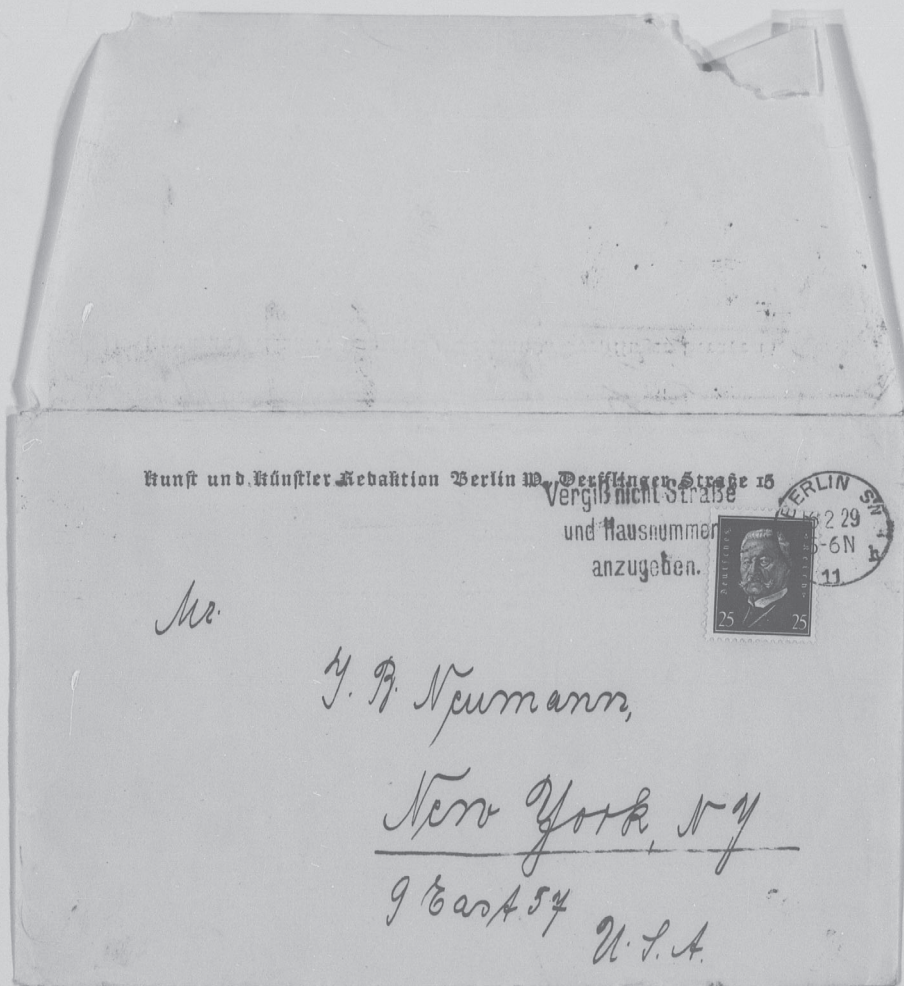 Kunst und Künstler Redaktion Berlin W. Derfflinger Straße 16
Vergiß nicht Straße
und Hausnummer
anzugeben.
BERLIN SW
2 29
5-6N
h
11
Deutsches Reich
25 25
Mr.
J. B. Neumann,
New York, N Y
9 East 57
U.S.A.